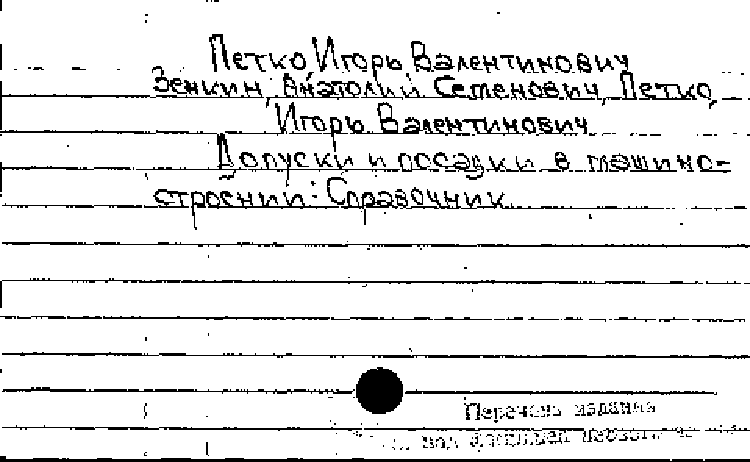 Петко, Игорь Валентинович
Зенкин, Анатолий Семенович, Петко,
Игорь Валентинович
Допуски и посадки в машино-
строении: Справочник
Перечень издания
под фамилией первого